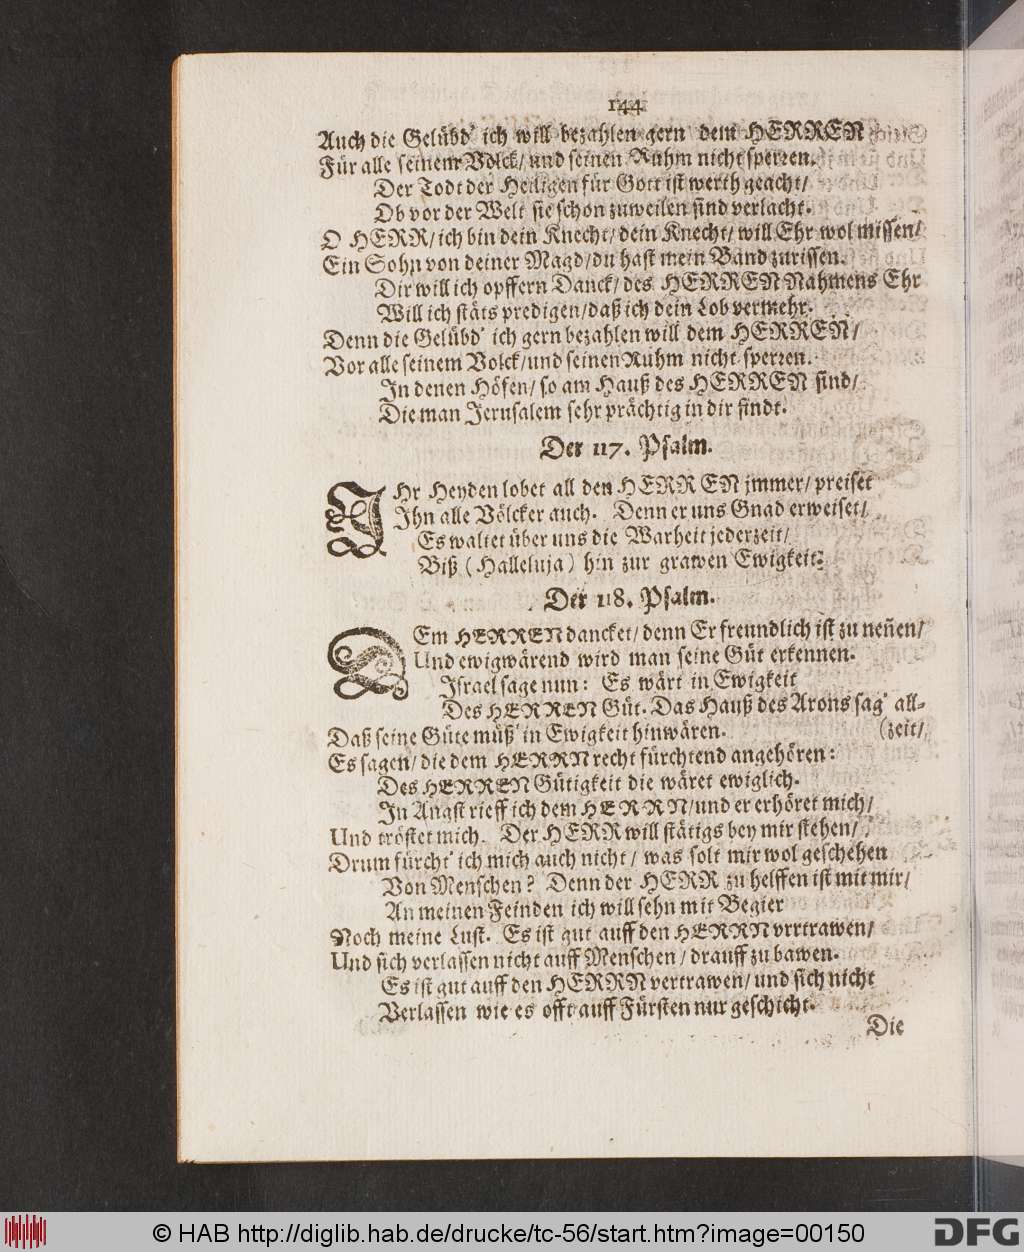 144
Auch die Gelübd' ich will bezahlen gern dem HERREN
Für alle seinem Volck/ und seinen Ruhm nicht sperren.
Der Todt der Heiligen für Gott ist werth geacht/
Ob vor der Welt sie schon zuweilen sind verlacht.
O HERR/ ich bin dein Knecht/ dein Knecht/ will Ehr wol missen/
Ein Sohn von deiner Magd/ du hast mein Band zurissen.
Dir will ich opffern Danck/ des HERREN Nahmens Ehr
Will ich stäts predigen/ daß ich dein Lob vermehr.
Denn die Gelübd' ich gern bezahlen will dem HERREN/
Vor alle seinem Volck/ und seinen Ruhm nicht sperren.
In denen Höfen/ so am Hauß des HERREN sind/
Die man Jerusalem sehr prächtig in dir findt.
Der 117. Psalm.
IHr Heyden lobet all den HERREN jmmer/ preiset
Ihn alle Völcker auch. Denn er uns Gnad erweiset/
Es waltet über uns die Warheit jederzeit/
Biß (Halleluja) hin zur grawen Ewigkeit.
Der 118. Psalm.
DEm HERREN dancket/ denn Er freundlich ist zu neñen/
Und ewigwärend wird man seine Güt erkennen.
Israel sage nun: Es wärt in Ewigkeit
Des HERREN Güt. Das Hauß des Arons sag' all-
Daß seine Güte müß' in Ewigkeit hinwären. (zeit/
Es sagen/ die dem HERRN recht fürchtend angehören:
Des HERREN Gütigkeit die wäret ewiglich.
In Angst rieff ich dem HERRN/ und er erhöret mich/
Und tröstet mich. Der HERR will stätigs bey mir stehen/
Drum fürcht' ich mich auch nicht/ was solt mir wol geschehen
Von Menschen? Denn der HERR zu helffen ist mit mir/
An meinen Feinden ich will sehn mit Begier
Noch meine Lust. Es ist gut auff den HERRN vrrtrawen/
Und sich verlassen nicht auff Menschen/ drauff zu bawen.
Es ist gut auff den HERRN vertrawen/ und sich nicht
Verlassen wie es offt auff Fürsten nur geschicht.
Die
© HAB http://diglib.hab.de/drucke/tc-56/start.htm?image=00150
DFG